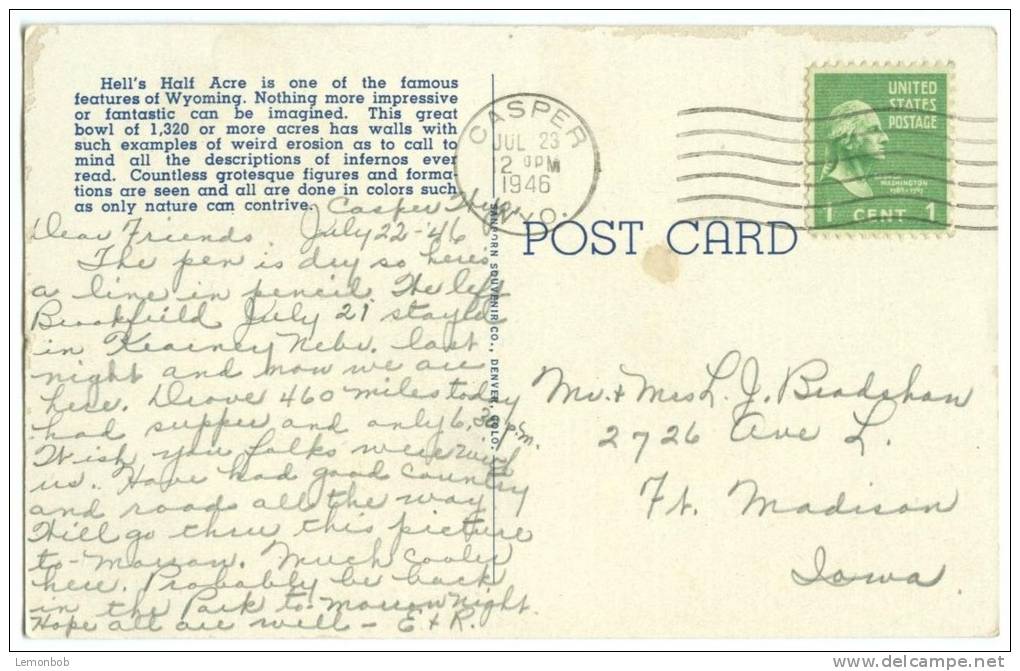 Hell's Half Acre is one of the famous
features of Wyoming. Nothing more impressive
or fantastic can be imagined. This great
bowl of 1,320 or more acres has walls with
such examples of weird erosion as to call to
mind all the descriptions of infernos ever
read. Countless grotesque figures and forma
tions are seen and all are done in colors such
as only nature can contrive.
Casper Wyo.
Dear Friends. July 22-46
The pen is dry so here's
a line in pencil. We left
Brookfield July 21 stayed
in Kearney Nebr. last
night and now we are
here. Drove 460 miles today
had supper and only 6:30 p.m.
Wish you folks were with
us. Have had good country
and roads all the way
Will go thru this picture
to-morrow. Much cooler
here. Probably be back
in the Park to-morrow night.
Hope all are well - E & R.
SANBORN SOUVENIR CO., DENVER, COLO.
CASPER
JUL 23
2 PM
1946
WYO.
UNITED
STATES
POSTAGE
WASHINGTON
1 CENT 1
POST CARD
Mr. & Mrs L. J. Bradshaw
2726 Ave L.
Ft. Madison
Iowa
Lemonbob
delcampe.net